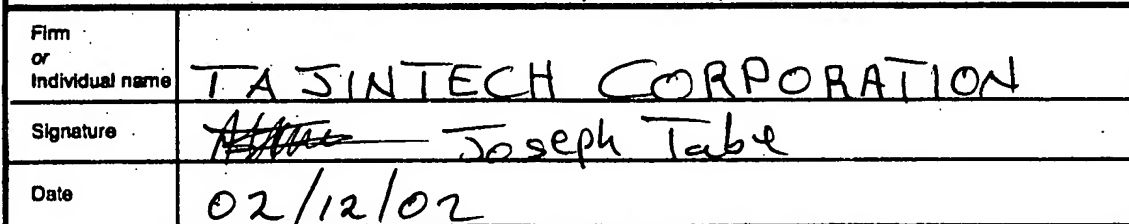 Firm
or
Individual name
TAJINTECH CORPORATION
Signature
Joseph Tabe
Date
02/12/02